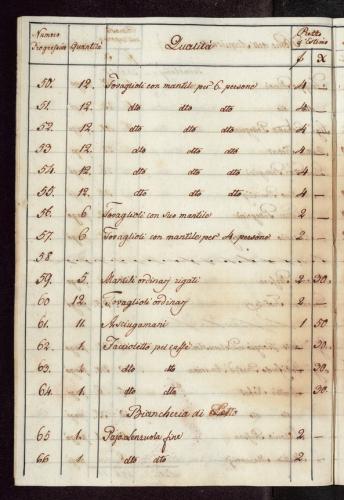 Numero Progressivo Quantità Qualità Prezzo di Estimo
f x
50. 12. Tovaglioli con mantile per 6 persone 4 —
51. 12. dto dto dto 4 —
52. 12. dto dto dto 4 —
53 12. dto dto dto 4 —
54. 12. dto dto dto 4 —
55. 12. dto dto dto 4 —
56. 6 Tovaglioli con suo mantile 2 —
57. 6 Tovaglioli con mantile per 4 persone 2 —
58
59. 5. Mantili ordinarj rigati 2 30
60 12. Tovaglioli ordinarj 2 —
61. 11. Asciugamani 1 50
62. 1. Faccioletto pel caffè — 30
63. 1. dto dto — 30
64. 1. dto dto — 30
Biancheria di Letto
65 1. Pajo Lenzuola fine 2 —
66 1. dto dto 2 —